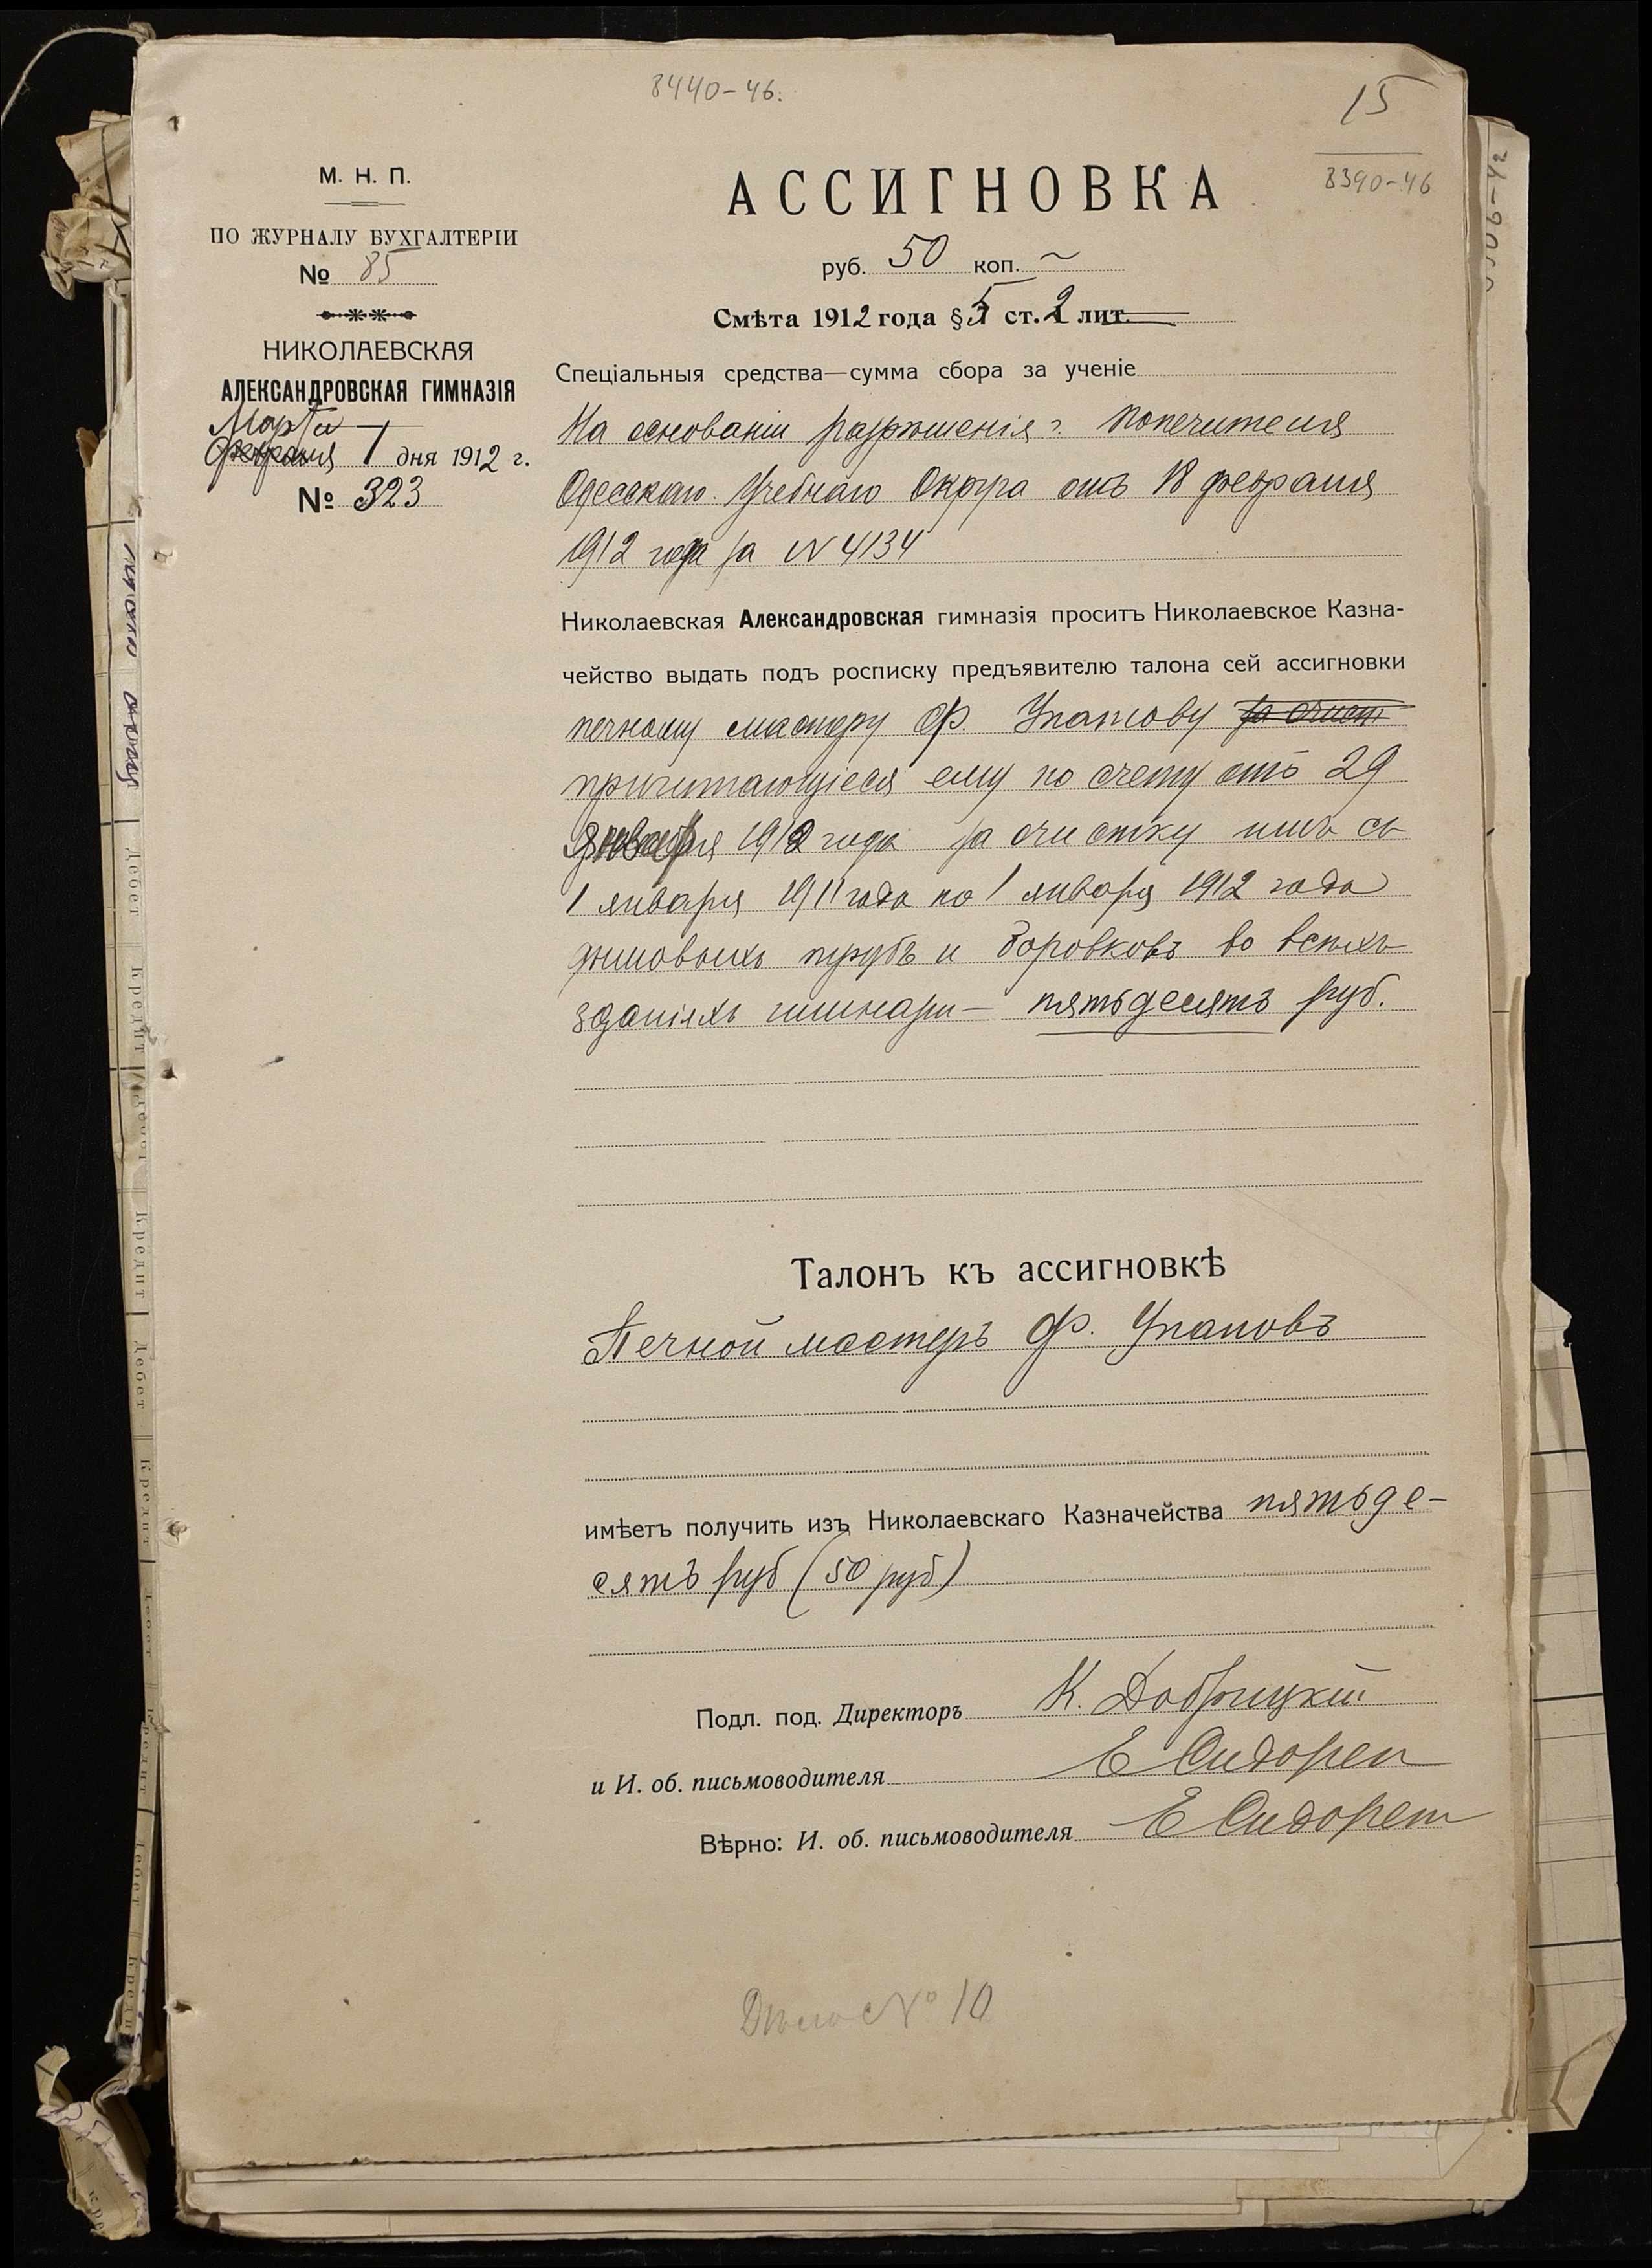 8440-46.
15
8390-46
М. Н. П.
ПО ЖУРНАЛУ БУХГАЛТЕРІИ
№ 85
НИКОЛАЕВСКАЯ
АЛЕКСАНДРОВСКАЯ ГИМНАЗІЯ
Марта
Февраля 1 дня 1912 г.
№ 323
АССИГНОВКА
руб. 50 коп. ~
Смѣта 1912 года § 5 ст. 2 лит.
Спеціальныя средства—сумма сбора за ученіе
На основаніи разрѣшенія г. Попечителя
Одесскаго Учебнаго Округа отъ 18 февраля
1912 года за N 4134
Николаевская Александровская гимназія проситъ Николаевское Казна-
чейство выдать подъ росписку предъявителю талона сей ассигновки
печному мастеру Ф. Упатову за очист
причитающіеся ему по счету отъ 29
января 1912 года за очистку имъ съ
1 января 1911 года по 1 января 1912 года
дымовыхъ трубъ и боровковъ во всѣхъ
зданіяхъ гимназіи — пятьдесятъ руб.
Талонъ къ ассигновкѣ
Печной мастеръ Ф. Упатовъ
имѣетъ получить изъ Николаевскаго Казначейства пятьде-
сятъ руб (50 руб)
Подл. под. Директоръ К. Добрицкій
и И. об. письмоводителя Е Сидорен
Вѣрно: И. об. письмоводителя Е Сидорен
Дѣло № 10
Дебет Кредит Дебет Кредит Дебет Кредит